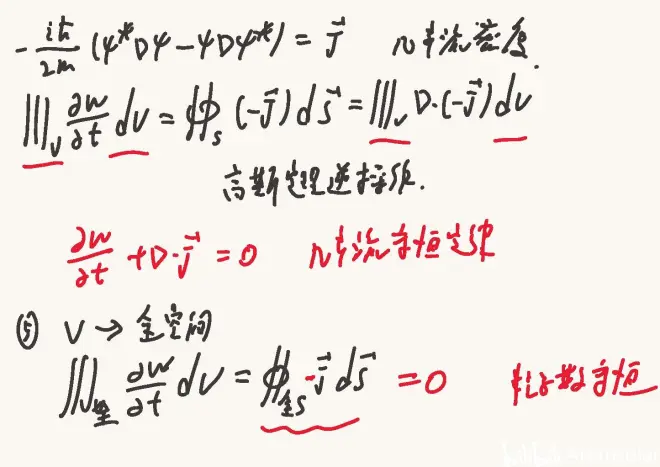 -iħ/2m (ψ*Dψ-ψDψ*) = J⃗ 几率流密度.
∭_V ∂w/∂t dv = ∯_S (-J⃗) dS⃗ = ∭_V D·(-J⃗) dv
高斯定理逆操作.
∂w/∂t + D·J⃗ = 0 几率流守恒定律
⑤ V → 全空间
∭_全 ∂w/∂t dv = ∯_全S -J⃗ dS⃗ = 0 粒子数守恒